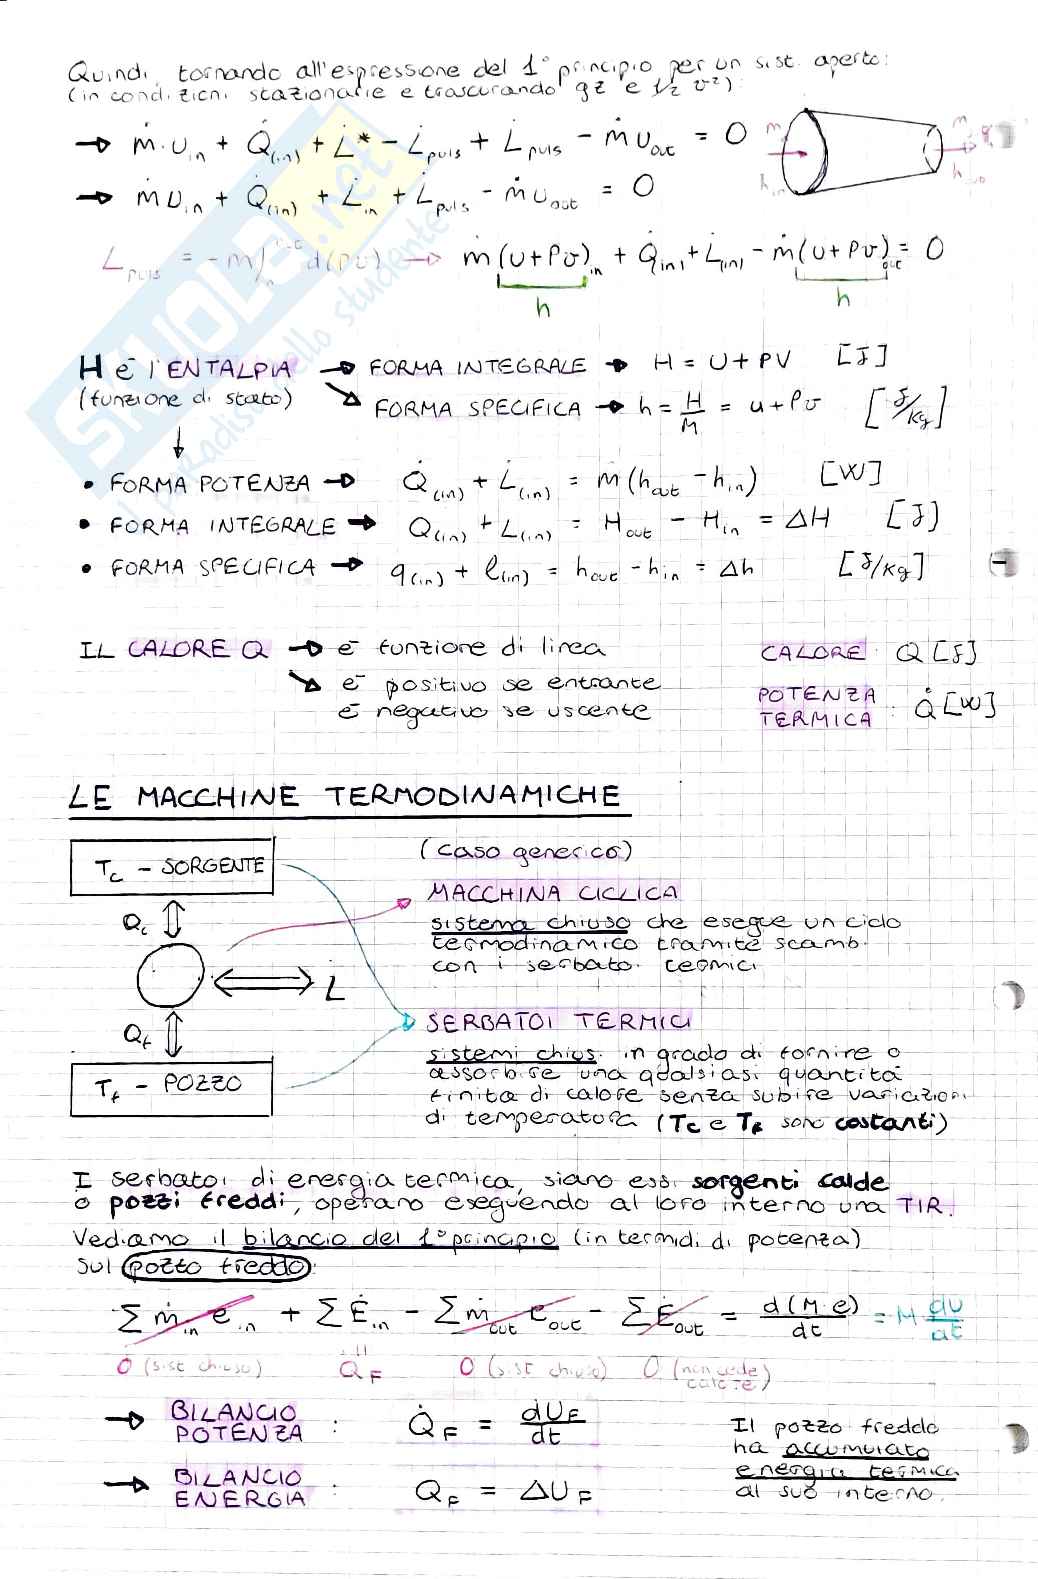 Quindi, tornando all'espressione del 1° principio per un sist. aperto:
(in condizioni stazionarie e trascurando gz e 1/2 v²):
→ ṁ·u_in + Q̇_(in) + L̇* - L̇_puls + L̇_puls - ṁu_out = 0
→ ṁu_in + Q̇_(in) + L̇_in + L̇_puls - ṁu_out = 0
L_puls = -m∫ d(pv) → ṁ(u+pv)_in + Q̇_(in) + L̇_(in) - ṁ(u+pv)_out = 0
h h
H è l'ENTALPIA → FORMA INTEGRALE → H = U + PV [J]
(funzione di stato) → FORMA SPECIFICA → h = H/M = u + pv [J/kg]
• FORMA POTENZA → Q̇_(in) + L̇_(in) = ṁ(h_out - h_in) [W]
• FORMA INTEGRALE → Q_(in) + L_(in) = H_out - H_in = ΔH [J]
• FORMA SPECIFICA → q_(in) + l_(in) = h_out - h_in = Δh [J/kg]
IL CALORE Q → è funzione di linea
→ è positivo se entrante
è negativo se uscente
CALORE: Q [J]
POTENZA
TERMICA: Q̇ [W]
LE MACCHINE TERMODINAMICHE
T_c - SORGENTE
Q_c
L̇
Q_f
T_f - POZZO
(caso generico)
MACCHINA CICLICA
sistema chiuso che esegue un ciclo
termodinamico tramite scambi
con i serbatoi termici
SERBATOI TERMICI
sistemi chiusi in grado di fornire o
assorbire una qualsiasi quantità
finita di calore senza subire variazioni
di temperatura (Tc e Tf sono costanti)
I serbatoi di energia termica, siano essi sorgenti calde
o pozzi freddi, operano eseguendo al loro interno una TIR.
Vediamo il bilancio del 1° principio (in termidi di potenza)
sul pozzo freddo:
Σ ṁ_in e_in + Σ Ė_in - Σ ṁ_out e_out - Σ Ė_out = d(M·e)/dt = M du/dt
0 (sist chiuso) Q̇_F 0 (sist chiuso) 0 (non cede calore)
→ BILANCIO
POTENZA : Q̇_F = dU_F/dt
→ BILANCIO
ENERGIA : Q_F = ΔU_F
Il pozzo freddo
ha accumulato
energia termica
al suo interno.
SKUOLA.net
il paradiso dello studente